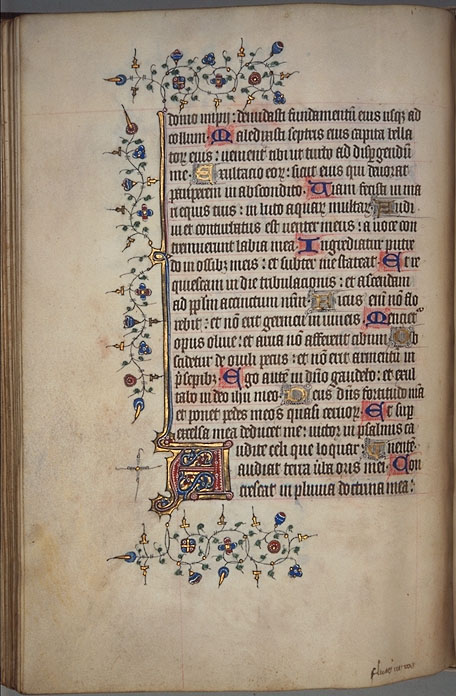 domo impij: denudasti fundamentū eius usqꝫ ad
collum. Maledixisti sceptris eius capiti bella
tor̄ eius: uenientibꝫ ut turbo ad disꝑgendū
me. Exultacio eoꝝ: sicut eius qui deuorat
pauperem in abscondito. Uiam fecisti in ma
ri equis tuis: in luto aquaꝝ multaꝝ. Audi
ui et conturbatus est uenter meus: a uoce con
tremuerunt labia mea. Ingrediatur putre
do in ossibꝫ meis: et subter me scateat. Ut re
quiescam in die tribulacionis: et ascendam
ad pp̄lm accinctum nr̄m. Ficus eni᷒ nō flo
rebit: et nō erit germen in uineis. Mencietᷣ
opus oliue: et arua nō afferent cibum. Ab
scidetur de ouili pecus: et nō erit armentū in
p̄sepibꝫ. Ego autē in dn̄o gaudebo: et exul
tabo in deo ihu meo. Deus dn̄s fortitudo mea
et ponet pedes meos quasi ceruoꝝ. Et suꝑ
excelsa mea deducet me: uictor in psalmis ca
Audite celi que loquar: nente.
audiat terra ūba oris mei. Con
crescat in pluuia doctrina mea: